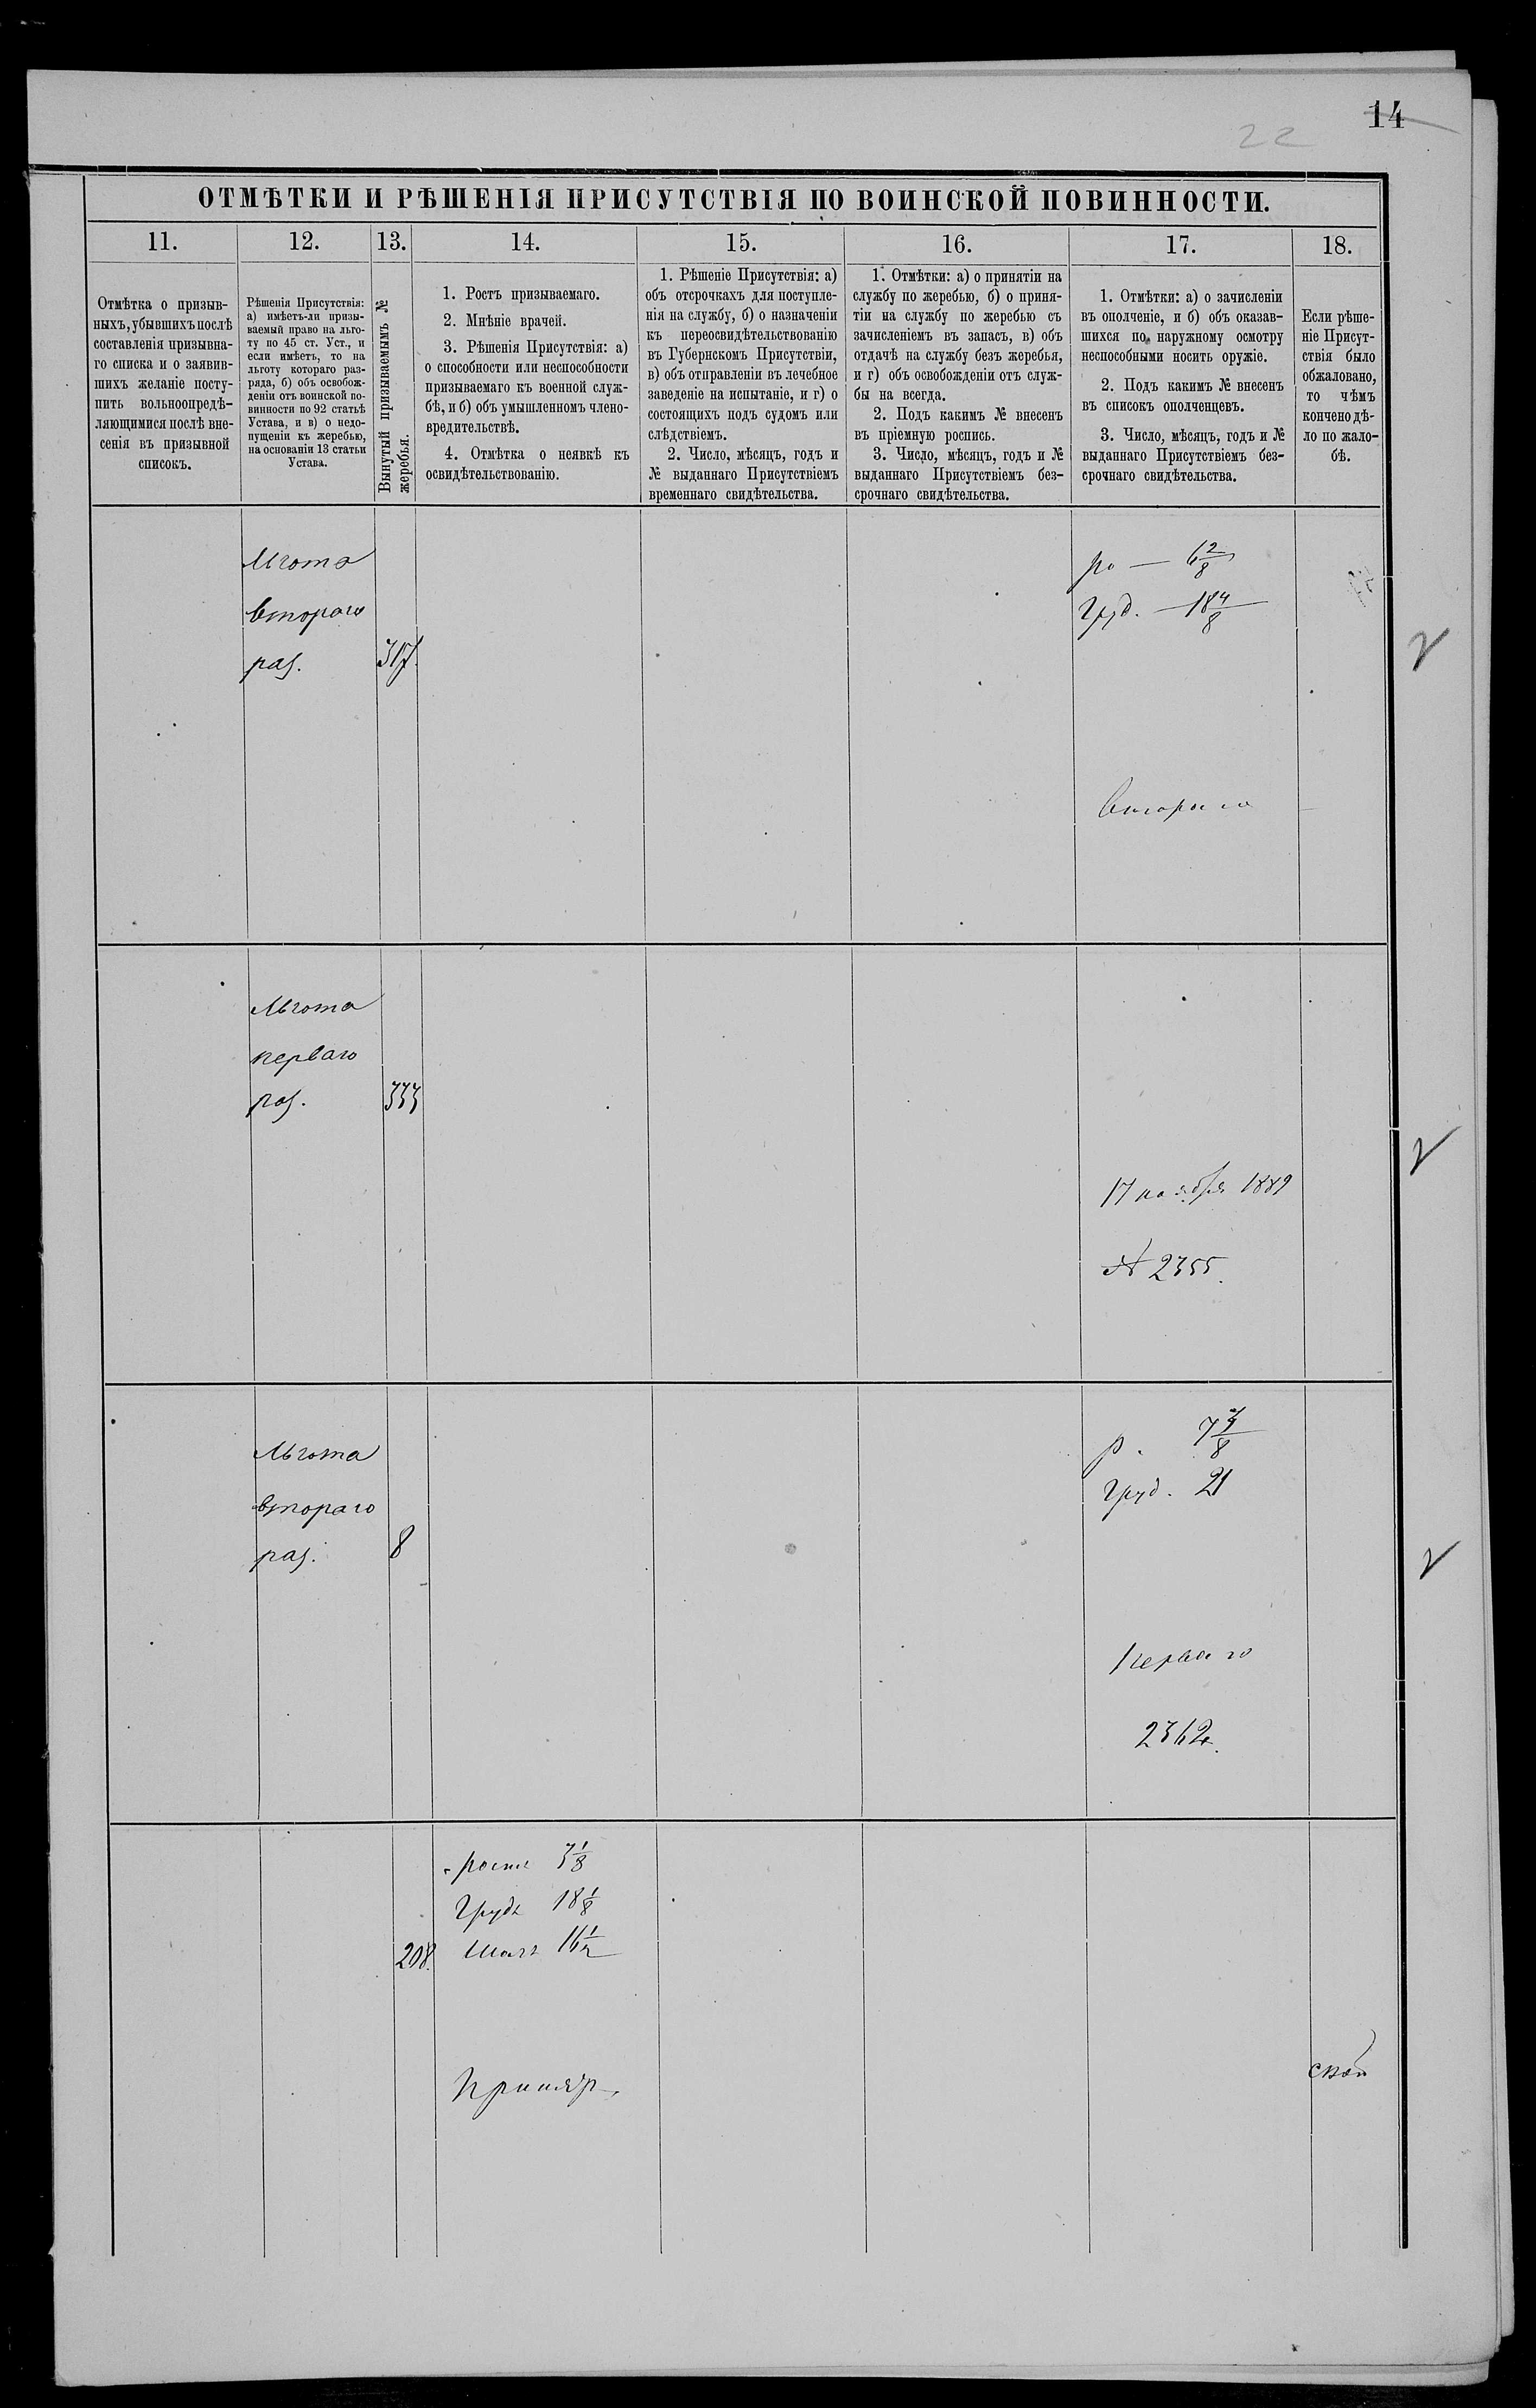 14
22
ОТМѢТКИ И РѢШЕНІЯ ПРИСУТСТВІЯ ПО ВОИНСКОЙ ПОВИННОСТИ.
11.
Отмѣтка о призыв-
ныхъ, убывшихъ послѣ
составленія призывна-
го списка и о заявив-
шихъ желаніе посту-
пить вольноопредѣ-
ляющимися послѣ вне-
сенія въ призывной
списокъ.
12.
Рѣшенія Присутствія:
а) имѣетъ-ли призы-
ваемый право на льго-
ту по 45 ст. Уст., и
если имѣетъ, то на
льготу котораго раз-
ряда, б) объ освобож-
деніи отъ воинской по-
винности по 92 статьѣ
Устава, и в) о недо-
пущеніи къ жеребью,
на основаніи 13 статьи
Устава.
13.
Вынутый призываемымъ №
жеребья.
14.
1. Ростъ призываемаго.
2. Мнѣніе врачей.
3. Рѣшенія Присутствія: а)
о способности или неспособности
призываемаго къ военной служ-
бѣ, и б) объ умышленномъ члено-
вредительствѣ.
4. Отмѣтка о неявкѣ къ
освидѣтельствованію.
15.
1. Рѣшеніе Присутствія: а)
объ отсрочкахъ для поступле-
нія на службу, б) о назначеніи
къ переосвидѣтельствованію
въ Губернскомъ Присутствіи,
в) объ отправленіи въ лечебное
заведеніе на испытаніе, и г) о
состоящихъ подъ судомъ или
слѣдствіемъ.
2. Число, мѣсяцъ, годъ и
№ выданнаго Присутствіемъ
временнаго свидѣтельства.
16.
1. Отмѣтки: а) о принятіи на
службу по жеребью, б) о приня-
тіи на службу по жеребью съ
зачисленіемъ въ запасъ, в) объ
отдачѣ на службу безъ жеребья,
и г) объ освобожденіи отъ служ-
бы на всегда.
2. Подъ какимъ № внесенъ
въ пріемную роспись.
3. Число, мѣсяцъ, годъ и №
выданнаго Присутствіемъ без-
срочнаго свидѣтельства.
17.
1. Отмѣтки: а) о зачисленіи
въ ополченіе, и б) объ оказав-
шихся по наружному осмотру
неспособными носить оружіе.
2. Подъ какимъ № внесенъ
въ списокъ ополченцевъ.
3. Число, мѣсяцъ, годъ и №
выданнаго Присутствіемъ без-
срочнаго свидѣтельства.
18.
Если рѣше-
ніе Присут-
ствія было
обжаловано,
то чѣмъ
кончено дѣ-
ло по жало-
бѣ.
Льгота
втораго
раз.
317.
ро — 6 2/8
Груд. — 18 4/8
втораго
Льгота
перваго
раз.
333
17 ноября 1889
№ 2355.
Льгота
втораго
раз.
8
р. 7 7/8
Груд. 21
Перваго
2362.
208.
ростъ 3 1/8
Грудь 18 1/8
16 1/2